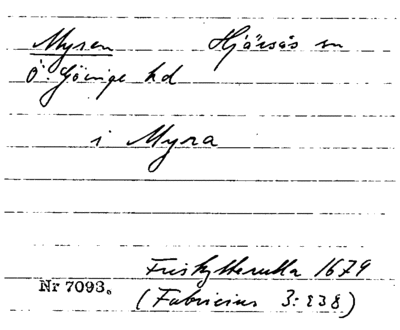 Myren Hjärsås sn
Ö. Göinge hd
i Myra
Friskytterulla 1679
Nr 7093. (Fabricius 3: 238)